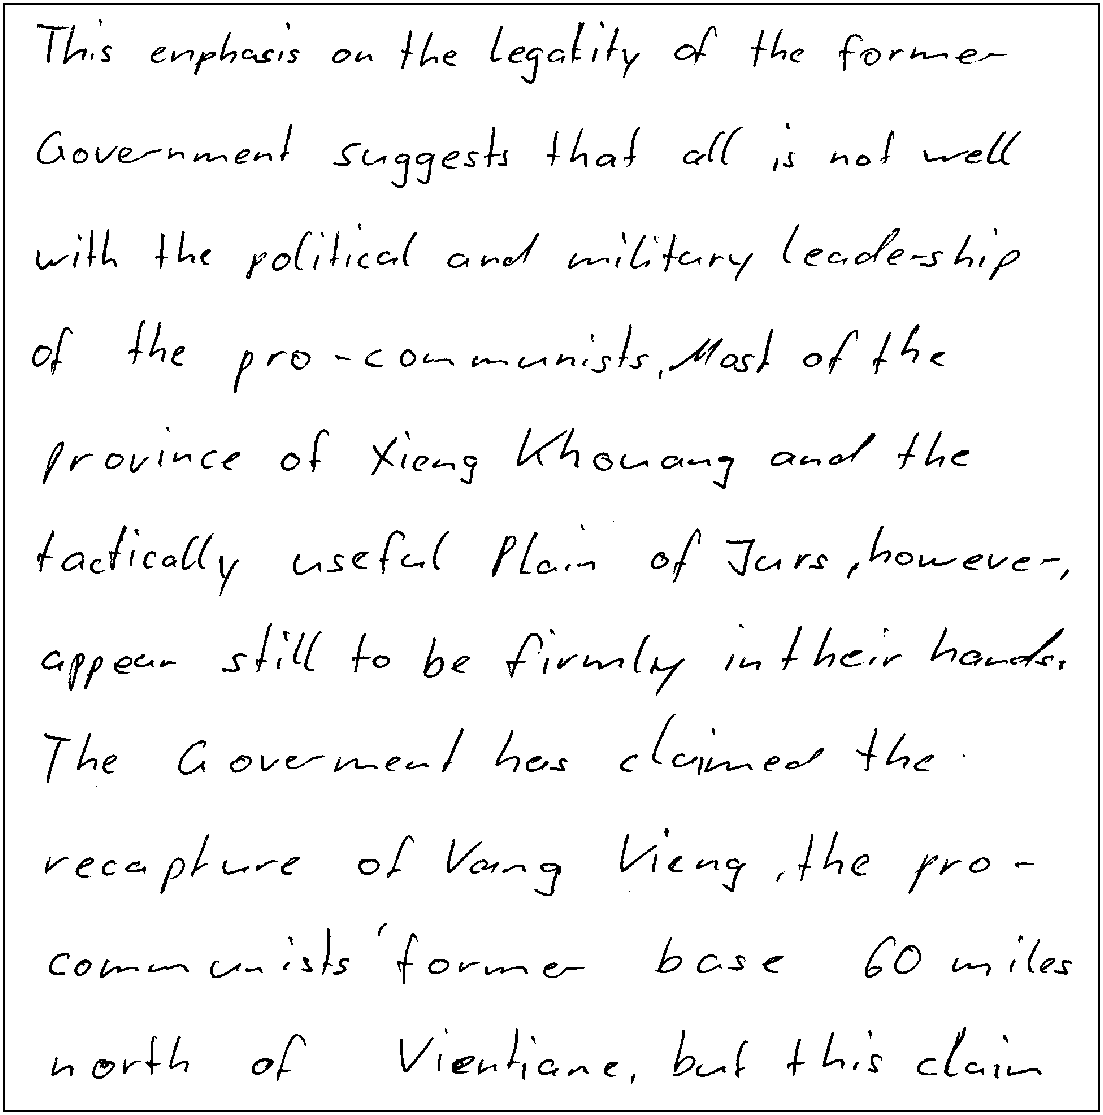 This enphasis on the legality of the former
Government suggests that all is not well
with the political and military leadership
of the pro-communists. Most of the
province of Xieng Khouang and the
tactically useful Plain of Jars, however,
appear still to be firmly in their hands.
The Goverment has claimed the
recapture of Vang Vieng, the pro-
communists' former base 60 miles
north of Vientiane, but this claim